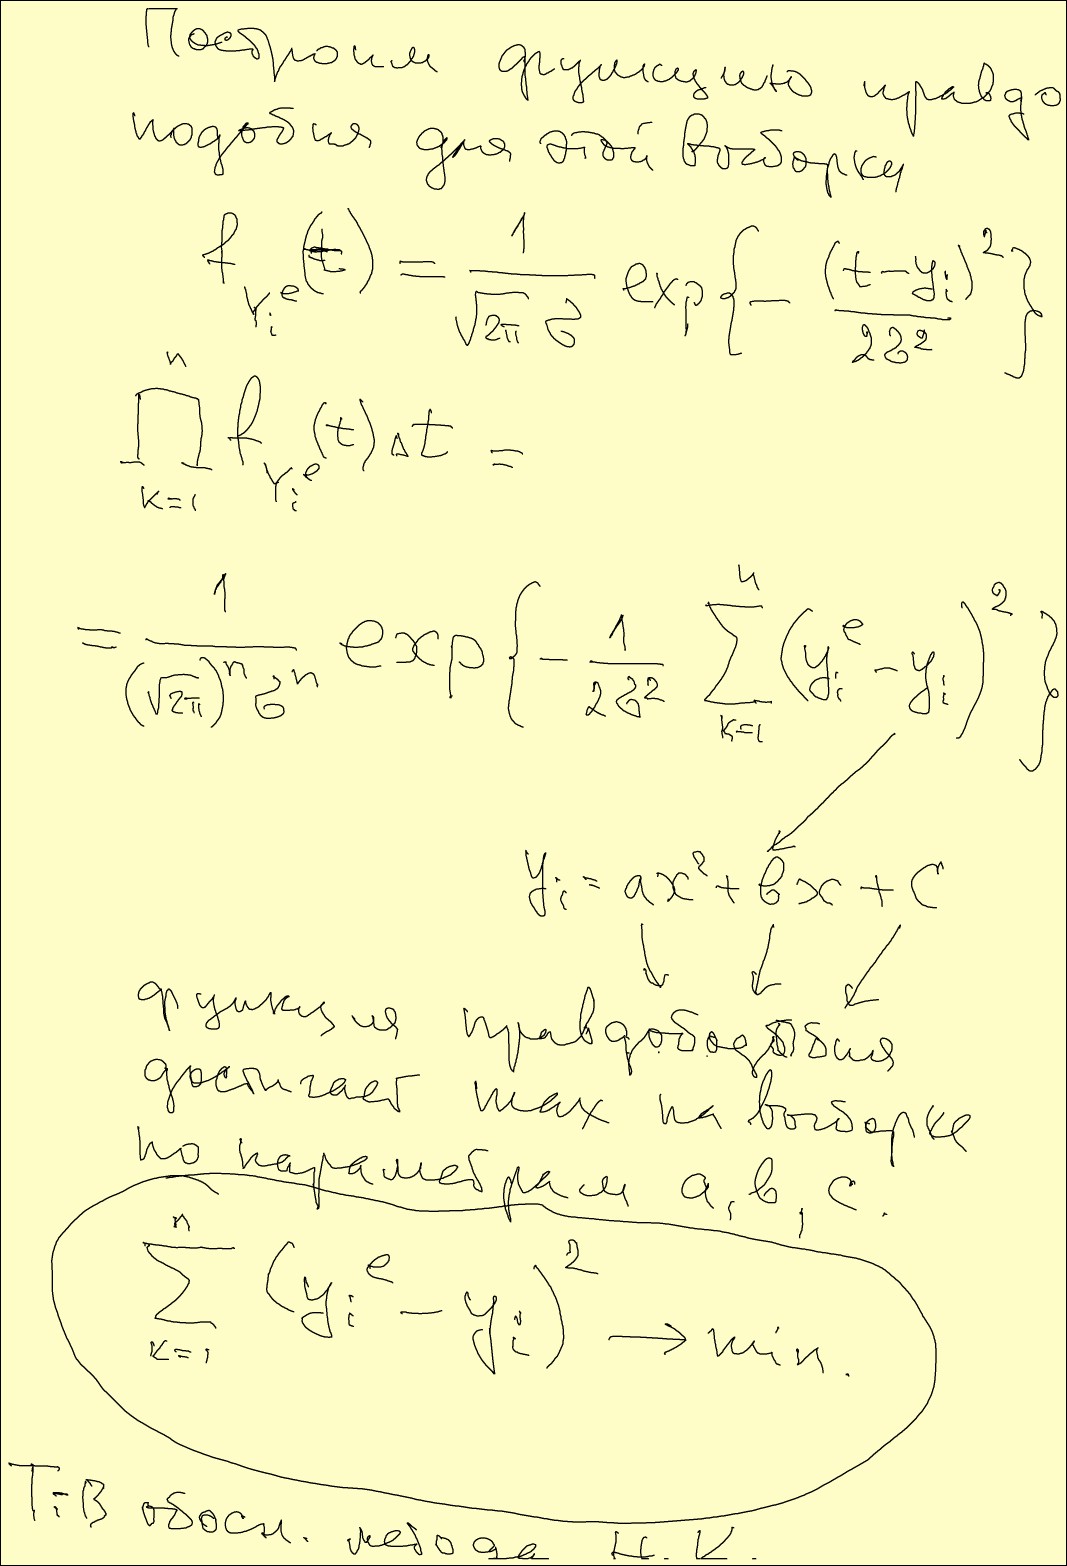 Построим функцию правдо
подобия для этой выборки
f_{Y_i^e}(t) = \frac{1}{\sqrt{2π} σ} exp{ - \frac{(t-y_i)^2}{2σ^2} }
\prod_{k=1}^{n} f_{Y_i^e}(t) Δt =
= \frac{1}{(\sqrt{2π})^n σ^n} exp{ - \frac{1}{2σ^2} \sum_{k=1}^{n} (y_i^e - y_i)^2 }
y_i = ax^2 + bx + c
функция правдободобия
достигает max на выборке
по параметрам a, b, c.
\sum_{k=1}^{n} (y_i^e - y_i)^2 → min.
Т.В обосн. метода Н.К.